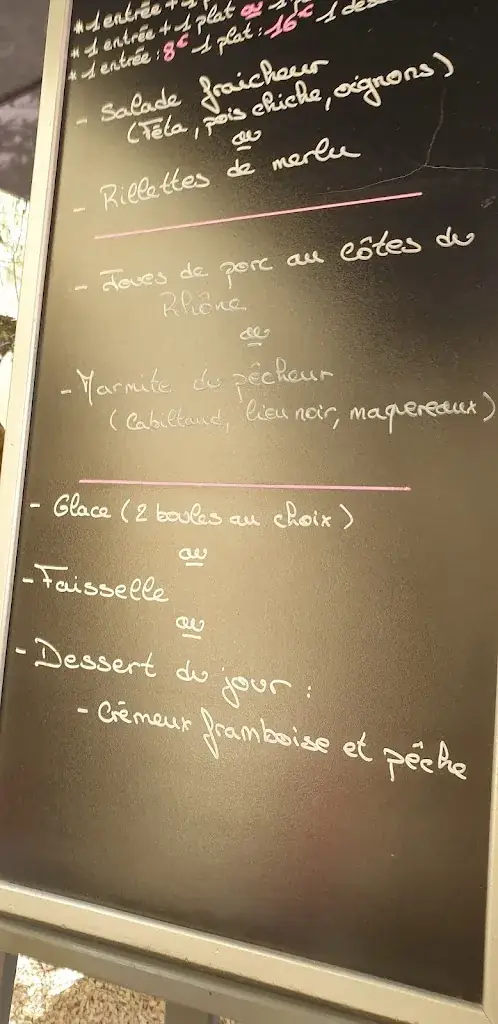 * 1 entrée +
* 1 entrée + 1 plat ou 1
* 1 entrée : 8€ 1 plat : 16€ 1 des
- Salade fraicheur
(Féta, pois chiche, oignons)
ou
- Rillettes de merlu
- Joues de porc au côtes du
Rhône
ou
- Marmite du pêcheur
(Cabillaud, lieu noir, maquereaux)
- Glace (2 boules au choix)
ou
- Faisselle
ou
- Dessert du jour :
- Crémeux framboise et pêche